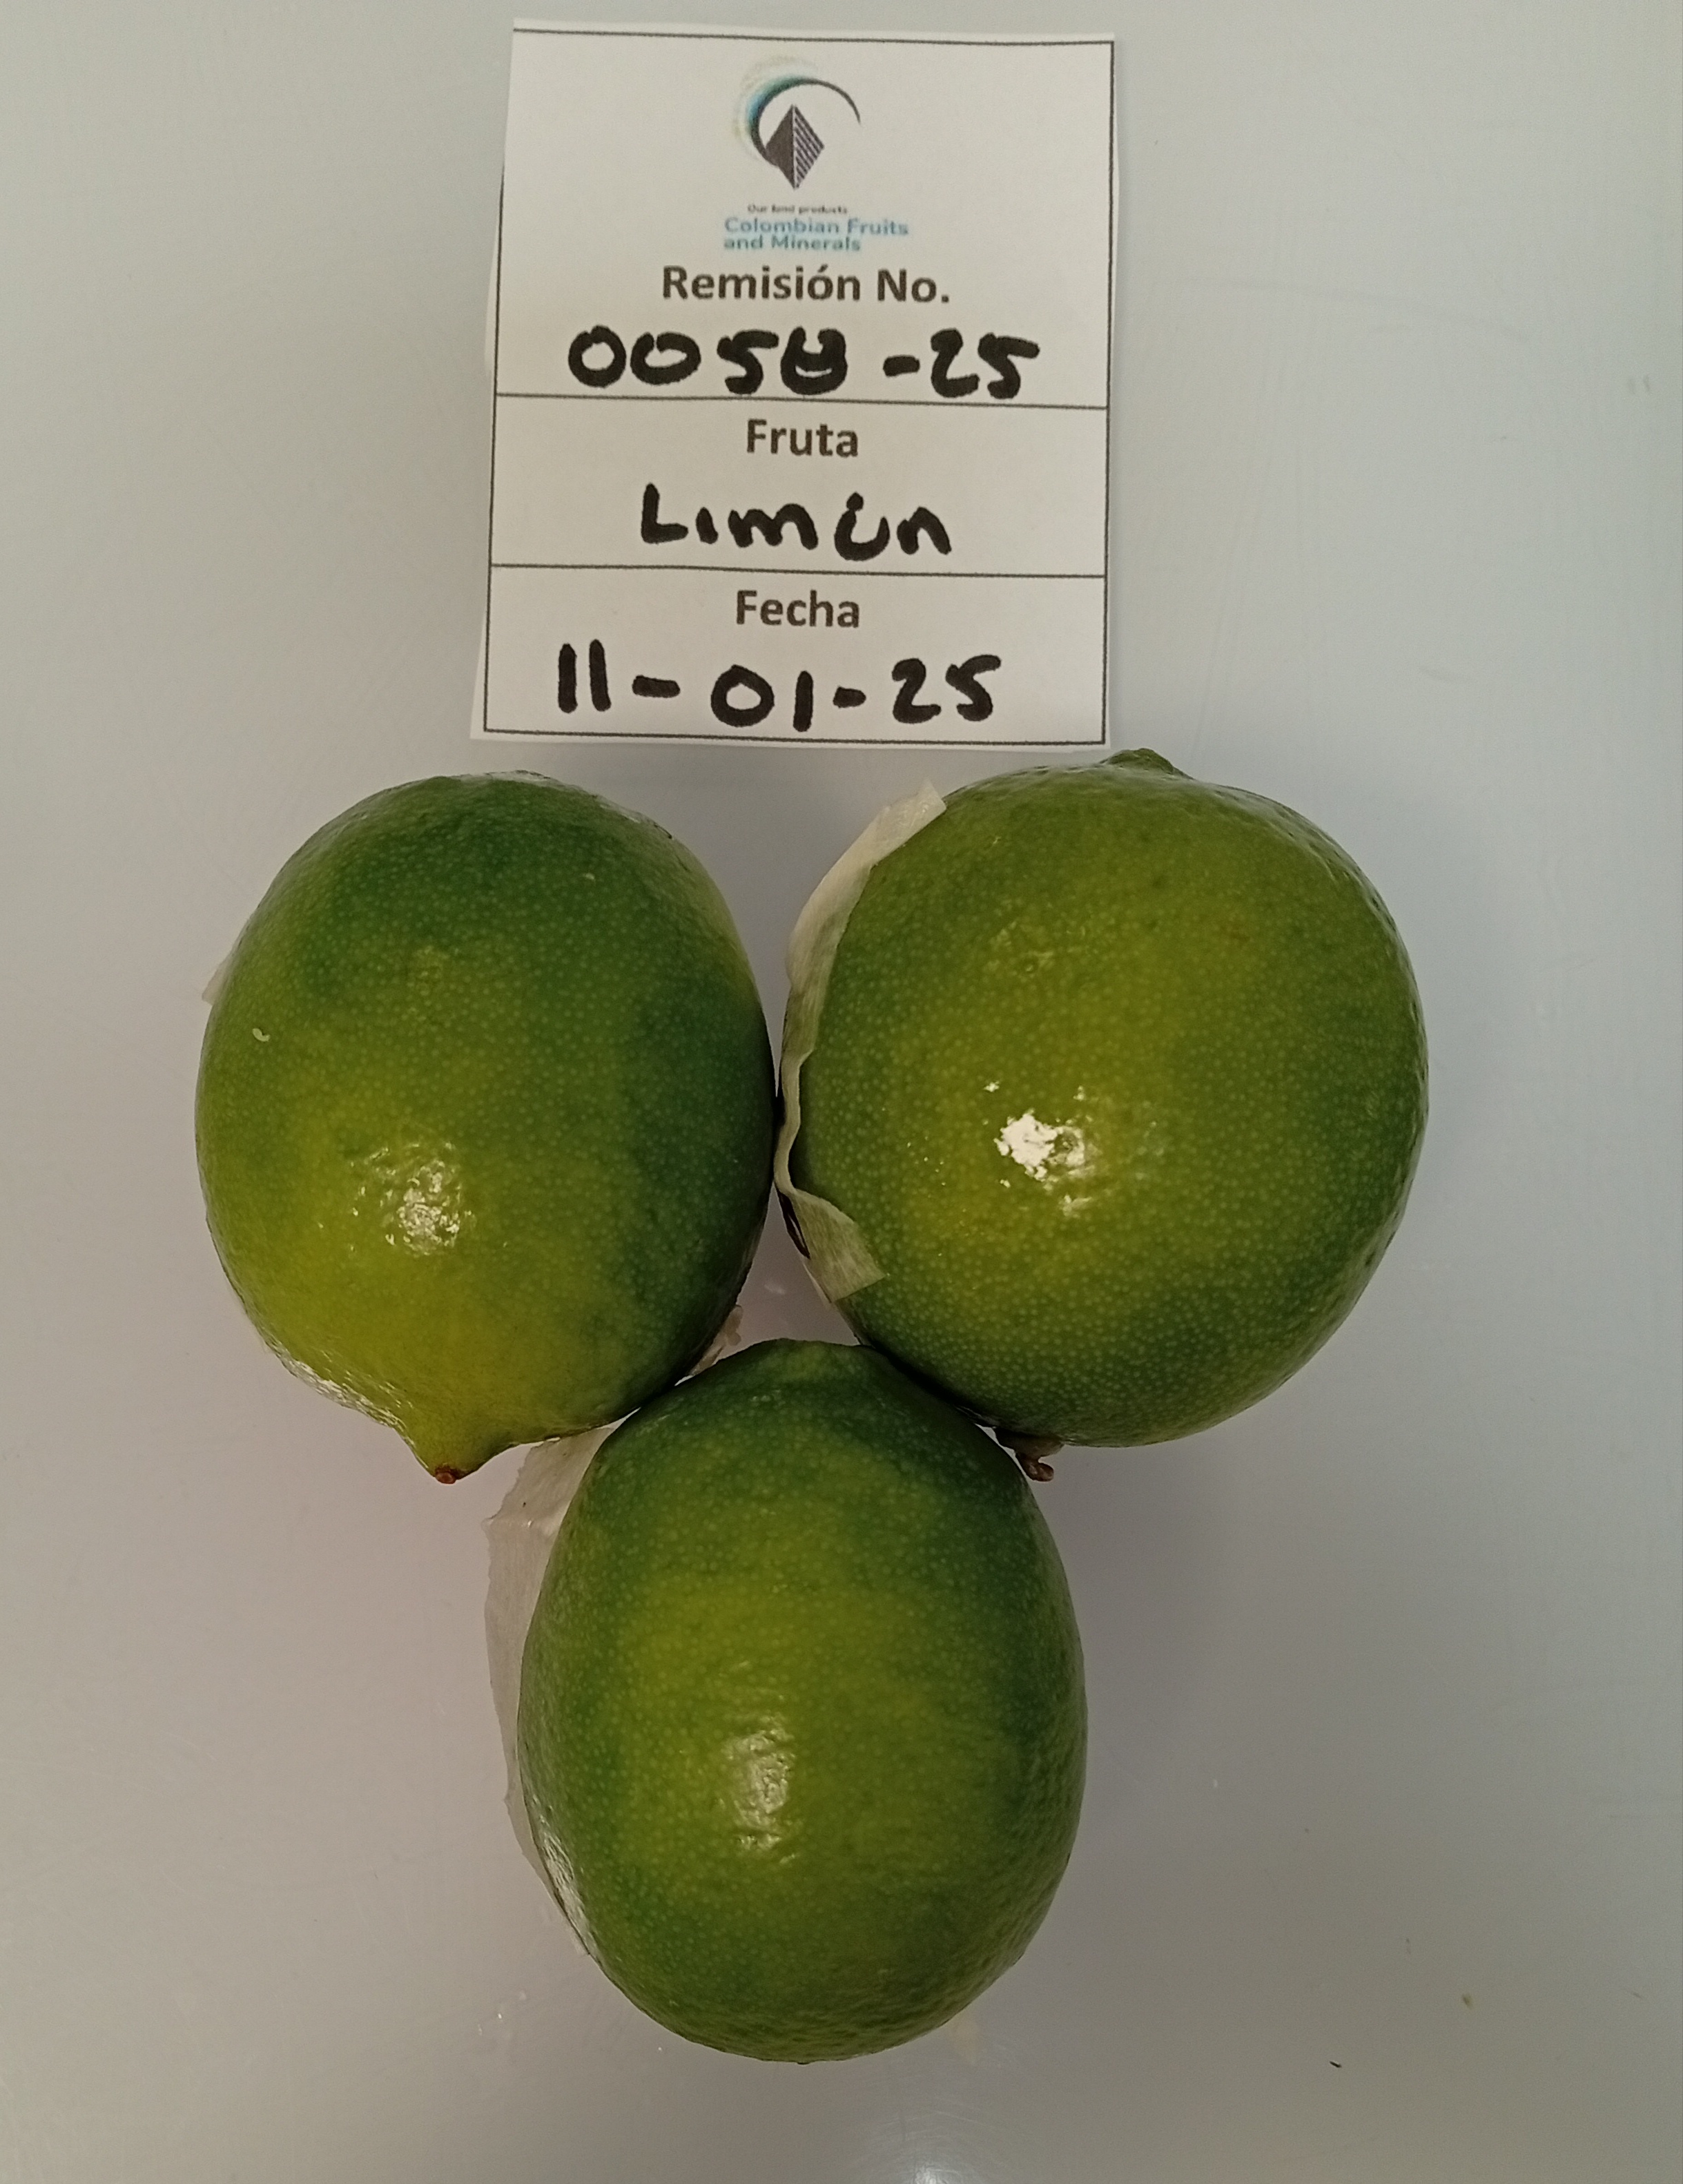 Our land products
Colombian Fruits
and Minerals
Remisión No.
0058-25
Fruta
Limón
Fecha
11-01-25